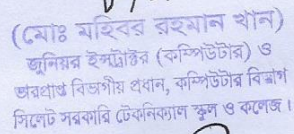 (মোঃ মহিবর রহমান খান)
জুনিয়র ইন্সট্রাক্টর (কম্পিউটার) ও
ভারপ্রাপ্ত বিভাগীয় প্রধান, কম্পিউটার বিভাগ
সিলেট সরকারি টেকনিক্যাল স্কুল ও কলেজ।